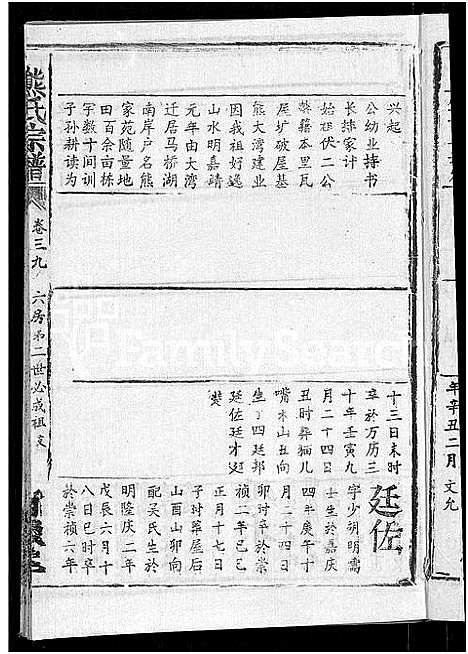 年辛丑二月 文允
兴起
公幼业持书
长缘家计
始祖伏二公
葬籍本里瓦
屋圹破屋基
熊大湾建业
因我祖好逸
山水明嘉靖
元年由大湾
迁居马桥湖
南岸户名熊
家苑随量地
田百余亩栋
字数十间训
子孙耕读为
十三日未时
卒於万历三
十年壬寅九
月二十四日
丑时葬猫儿
嘴木山丑向
生子四廷邦
廷佐廷才廷
楚
廷佐
字少胡明儒
士生於嘉庆
四年庚午十
月二十四日
卯时卒於崇
祯二年
正月十七日
子时葬屋后
山酉山卯向
配吴氏生於
明隆庆二年
戊辰六月十
八日巳时卒
於崇祯六年
熊氏宗谱
卷三九
六房弟二世必成祖支